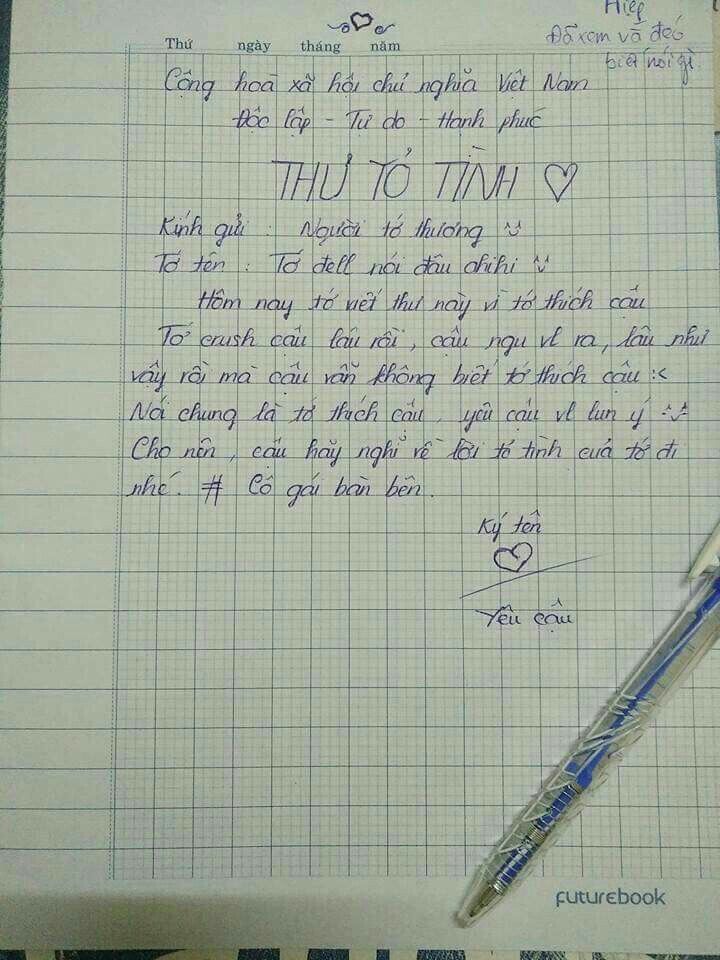 Hiệp
Đã xem và đéo
biết nói gì.
Thứ ngày tháng năm
Cộng hoà xã hội chủ nghĩa Việt Nam
Độc lập - Tự do - Hạnh phúc
THƯ TỎ TÌNH ♡
Kính gửi : Người tớ thương
Tớ tên : Tớ đell nói đâu chihi
Hôm nay tớ viết thư này vì tớ thích cậu
Tớ crush cậu lâu rồi, cậu ngu vl ra, lâu như
vậy rồi mà cậu vẫn không biết tớ thích cậu :<
Nói chung là tớ thích cậu, yêu cậu vl lun ý
Cho nên, cậu hãy nghĩ về lời tỏ tình của tớ đi
nhé. # Cô gái bàn bên.
Ký tên
♡
Yêu cậu
FUTUREBOOK